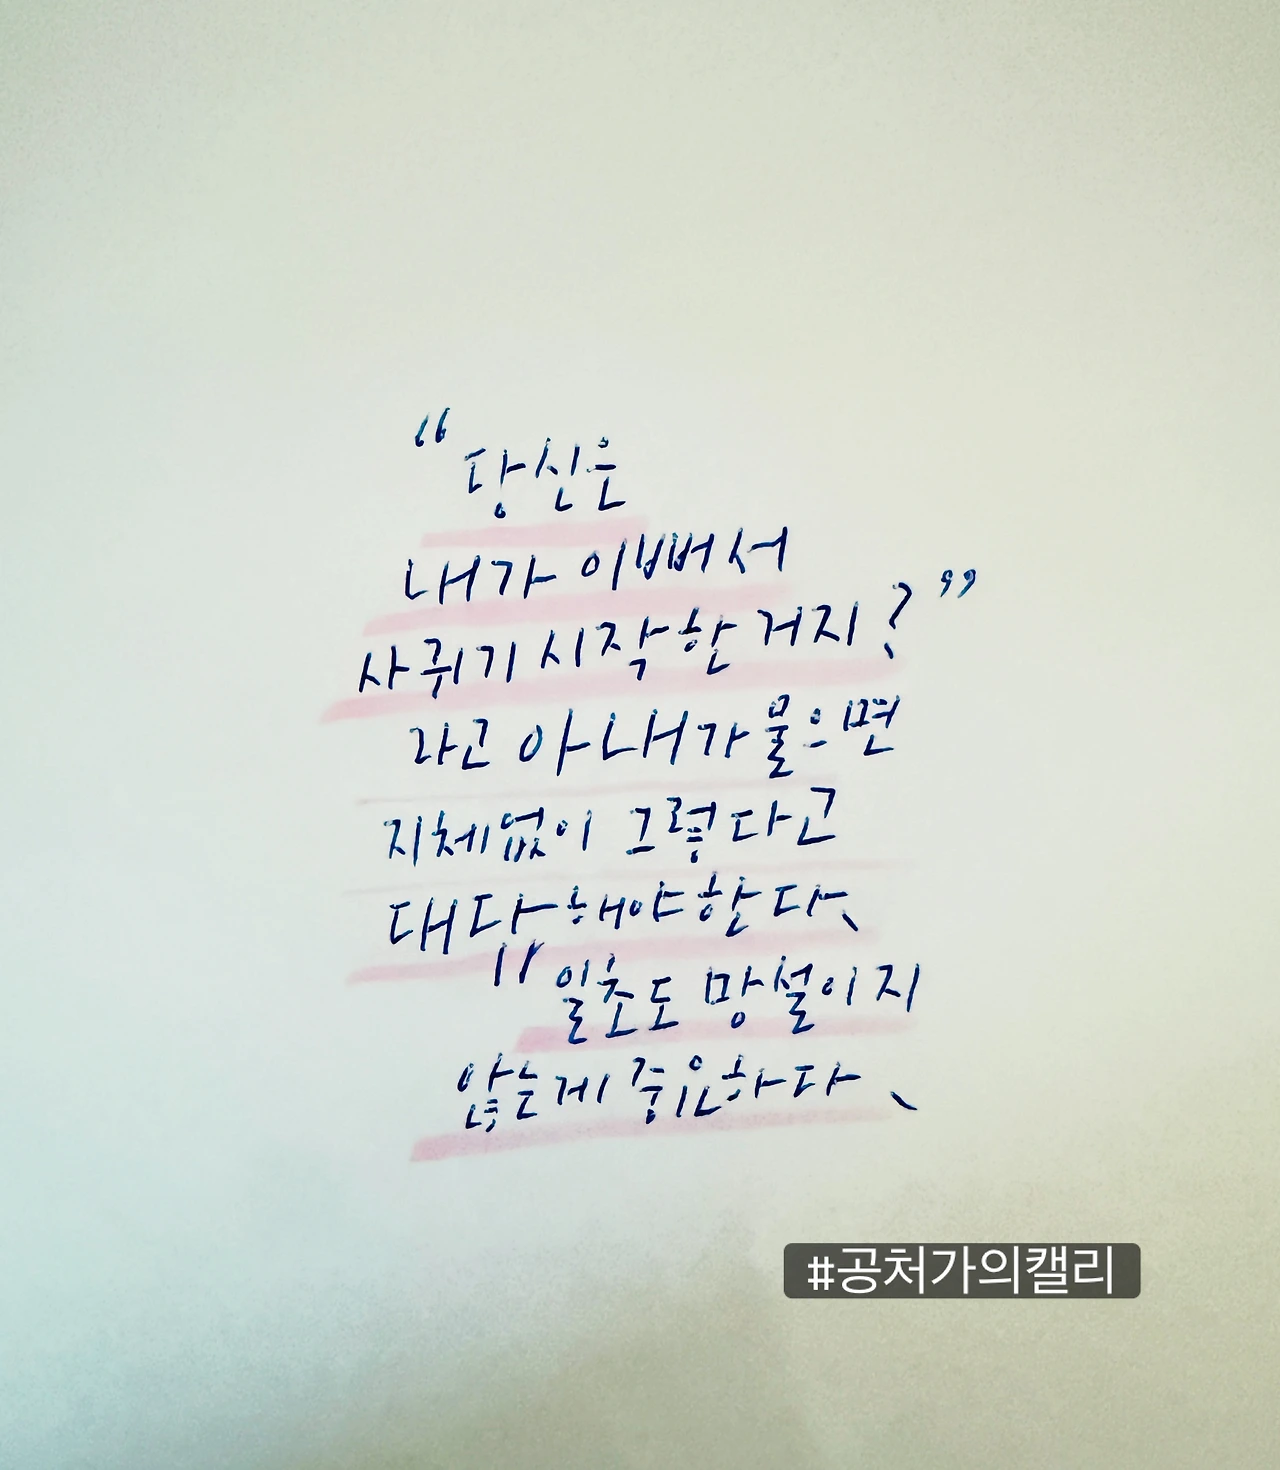 “당신은
내가 이뻐서
사귀기 시작한 거지?”
라고 아내가 물으면
지체없이 그렇다고
대답해야한다.
"일초도 망설이지
않는게 중요하다.
#공처가의캘리